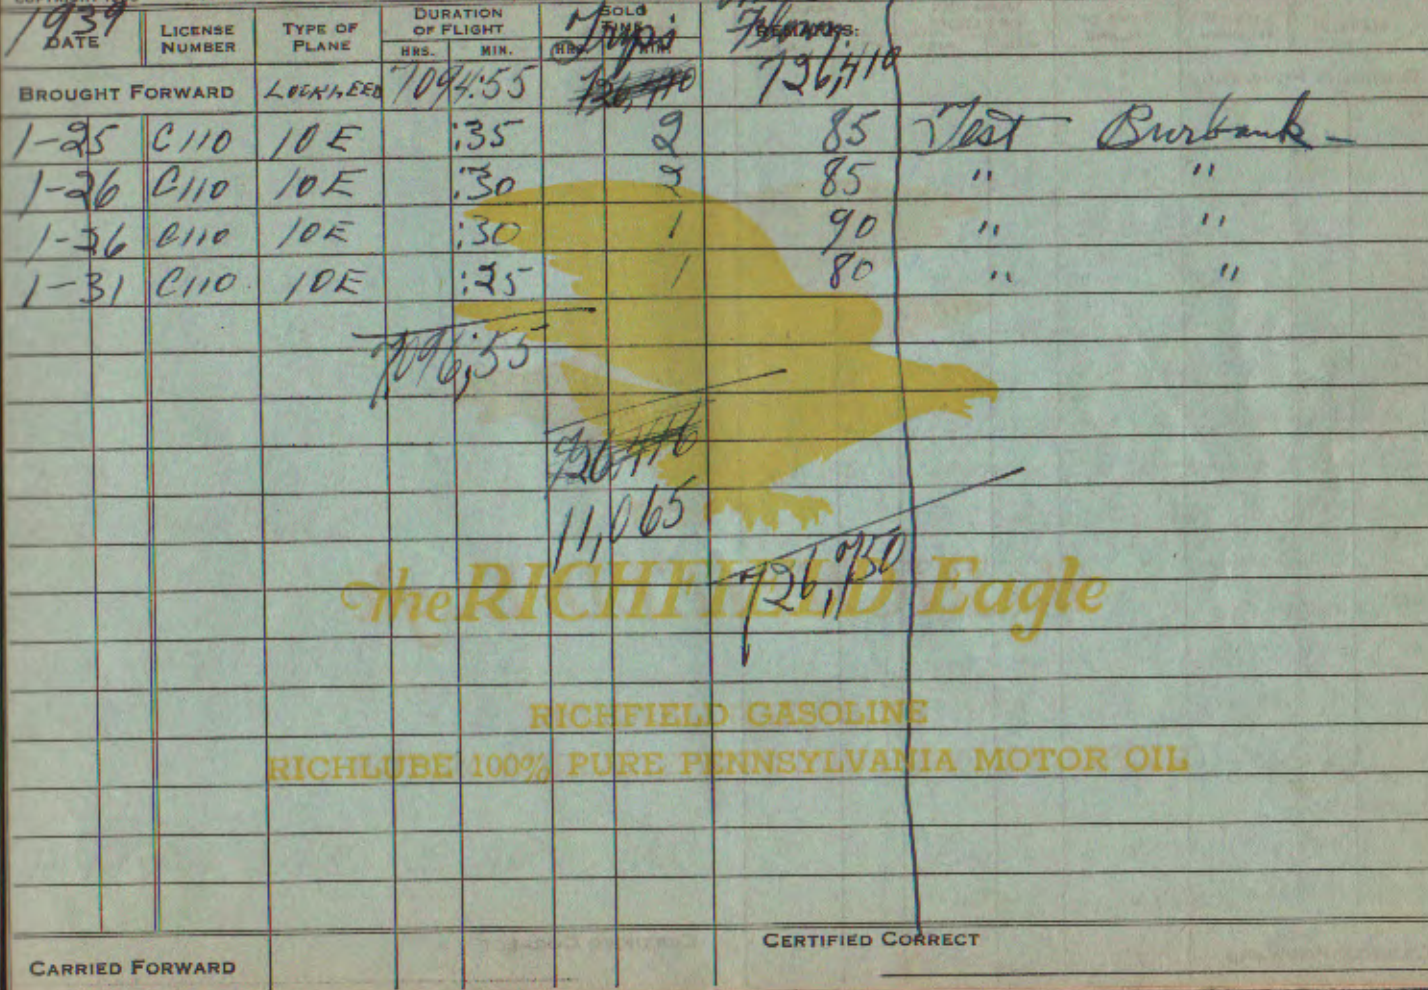 1939
DATE LICENSE NUMBER TYPE OF PLANE DURATION OF FLIGHT HRS. MIN. SOLO TIME HRS. MIN. Trips Flown REMARKS:
BROUGHT FORWARD LOCKHEED 7094:55 726,410 726,410
1-25 C110 10E :35 2 85 Test Burbank -
1-26 C110 10E :30 2 85 " "
1-26 C110 10E :30 1 90 " "
1-31 C110 10E :25 1 80 " "
7096:55
726,416
11,065
726,750
the RICHFIELD Eagle
RICHFIELD GASOLINE
RICHLUBE 100% PURE PENNSYLVANIA MOTOR OIL
CERTIFIED CORRECT
CARRIED FORWARD